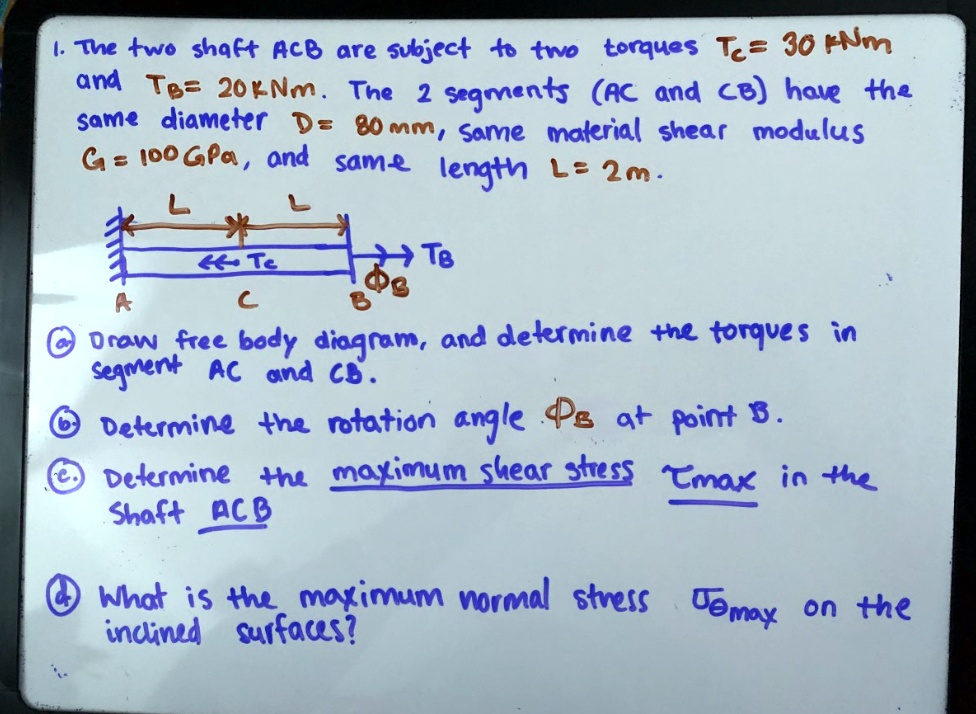 1. The two shaft ACB are subject to two torques Tc = 30 kNm
and TB = 20 kNm. The 2 segments (AC and CB) have the
same diameter D = 80 mm, same material shear modulus
G = 100 GPa, and same length L = 2m.
L L
Tc TB
ΦB
A C B
(a) Draw free body diagram, and determine the torques in
segment AC and CB.
(b.) Determine the rotation angle ΦB at point B.
(c.) Determine the maximum shear stress τmax in the
Shaft ACB
(d) What is the maximum normal stress σθmax on the
inclined surfaces?